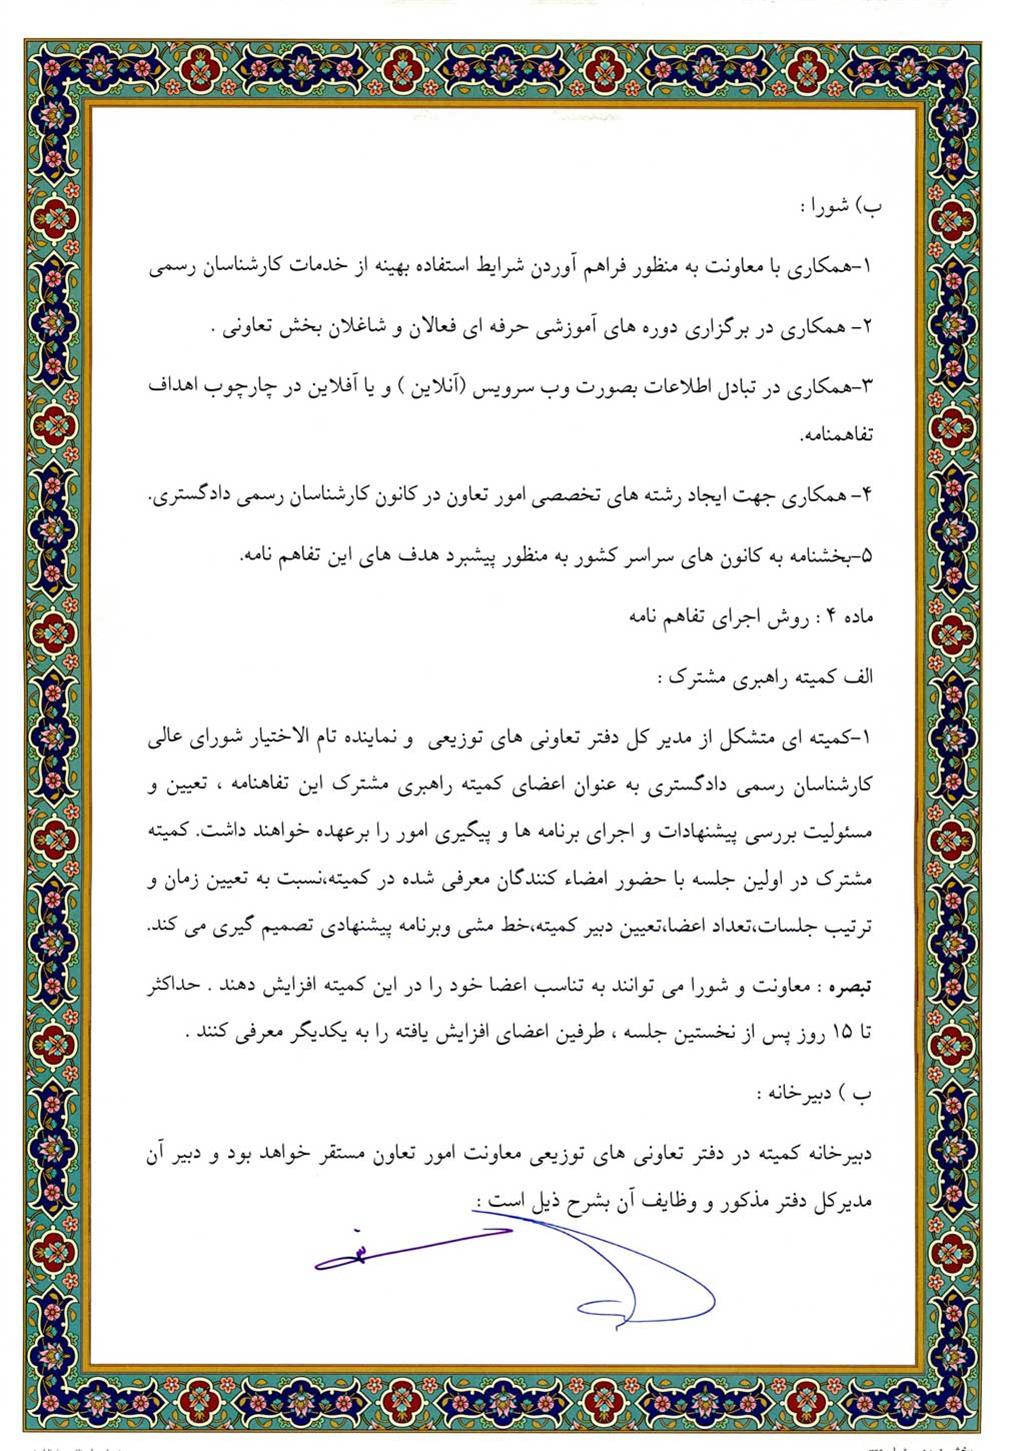 ب) شورا :
۱-همکاری با معاونت به منظور فراهم آوردن شرایط استفاده بهینه از خدمات کارشناسان رسمی
۲- همکاری در برگزاری دوره های آموزشی حرفه ای فعالان و شاغلان بخش تعاونی .
۳-همکاری در تبادل اطلاعات بصورت وب سرویس (آنلاین ) و یا آفلاین در چارچوب اهداف
تفاهمنامه.
۴- همکاری جهت ایجاد رشته های تخصصی امور تعاون در کانون کارشناسان رسمی دادگستری.
۵-بخشنامه به کانون های سراسر کشور به منظور پیشبرد هدف های این تفاهم نامه.
ماده ۴ : روش اجرای تفاهم نامه
الف کمیته راهبری مشترک :
۱-کمیته ای متشکل از مدیر کل دفتر تعاونی های توزیعی و نماینده تام الاختیار شورای عالی
کارشناسان رسمی دادگستری به عنوان اعضای کمیته راهبری مشترک این تفاهنامه ، تعیین و
مسئولیت بررسی پیشنهادات و اجرای برنامه ها و پیگیری امور را برعهده خواهند داشت. کمیته
مشترک در اولین جلسه با حضور امضاء کنندگان معرفی شده در کمیته،نسبت به تعیین زمان و
ترتیب جلسات،تعداد اعضا،تعیین دبیر کمیته،خط مشی وبرنامه پیشنهادی تصمیم گیری می کند.
تبصره : معاونت و شورا می توانند به تناسب اعضا خود را در این کمیته افزایش دهند . حداکثر
تا ۱۵ روز پس از نخستین جلسه ، طرفین اعضای افزایش یافته را به یکدیگر معرفی کنند .
ب ) دبیرخانه :
دبیرخانه کمیته در دفتر تعاونی های توزیعی معاونت امور تعاون مستقر خواهد بود و دبیر آن
مدیرکل دفتر مذکور و وظایف آن بشرح ذیل است :